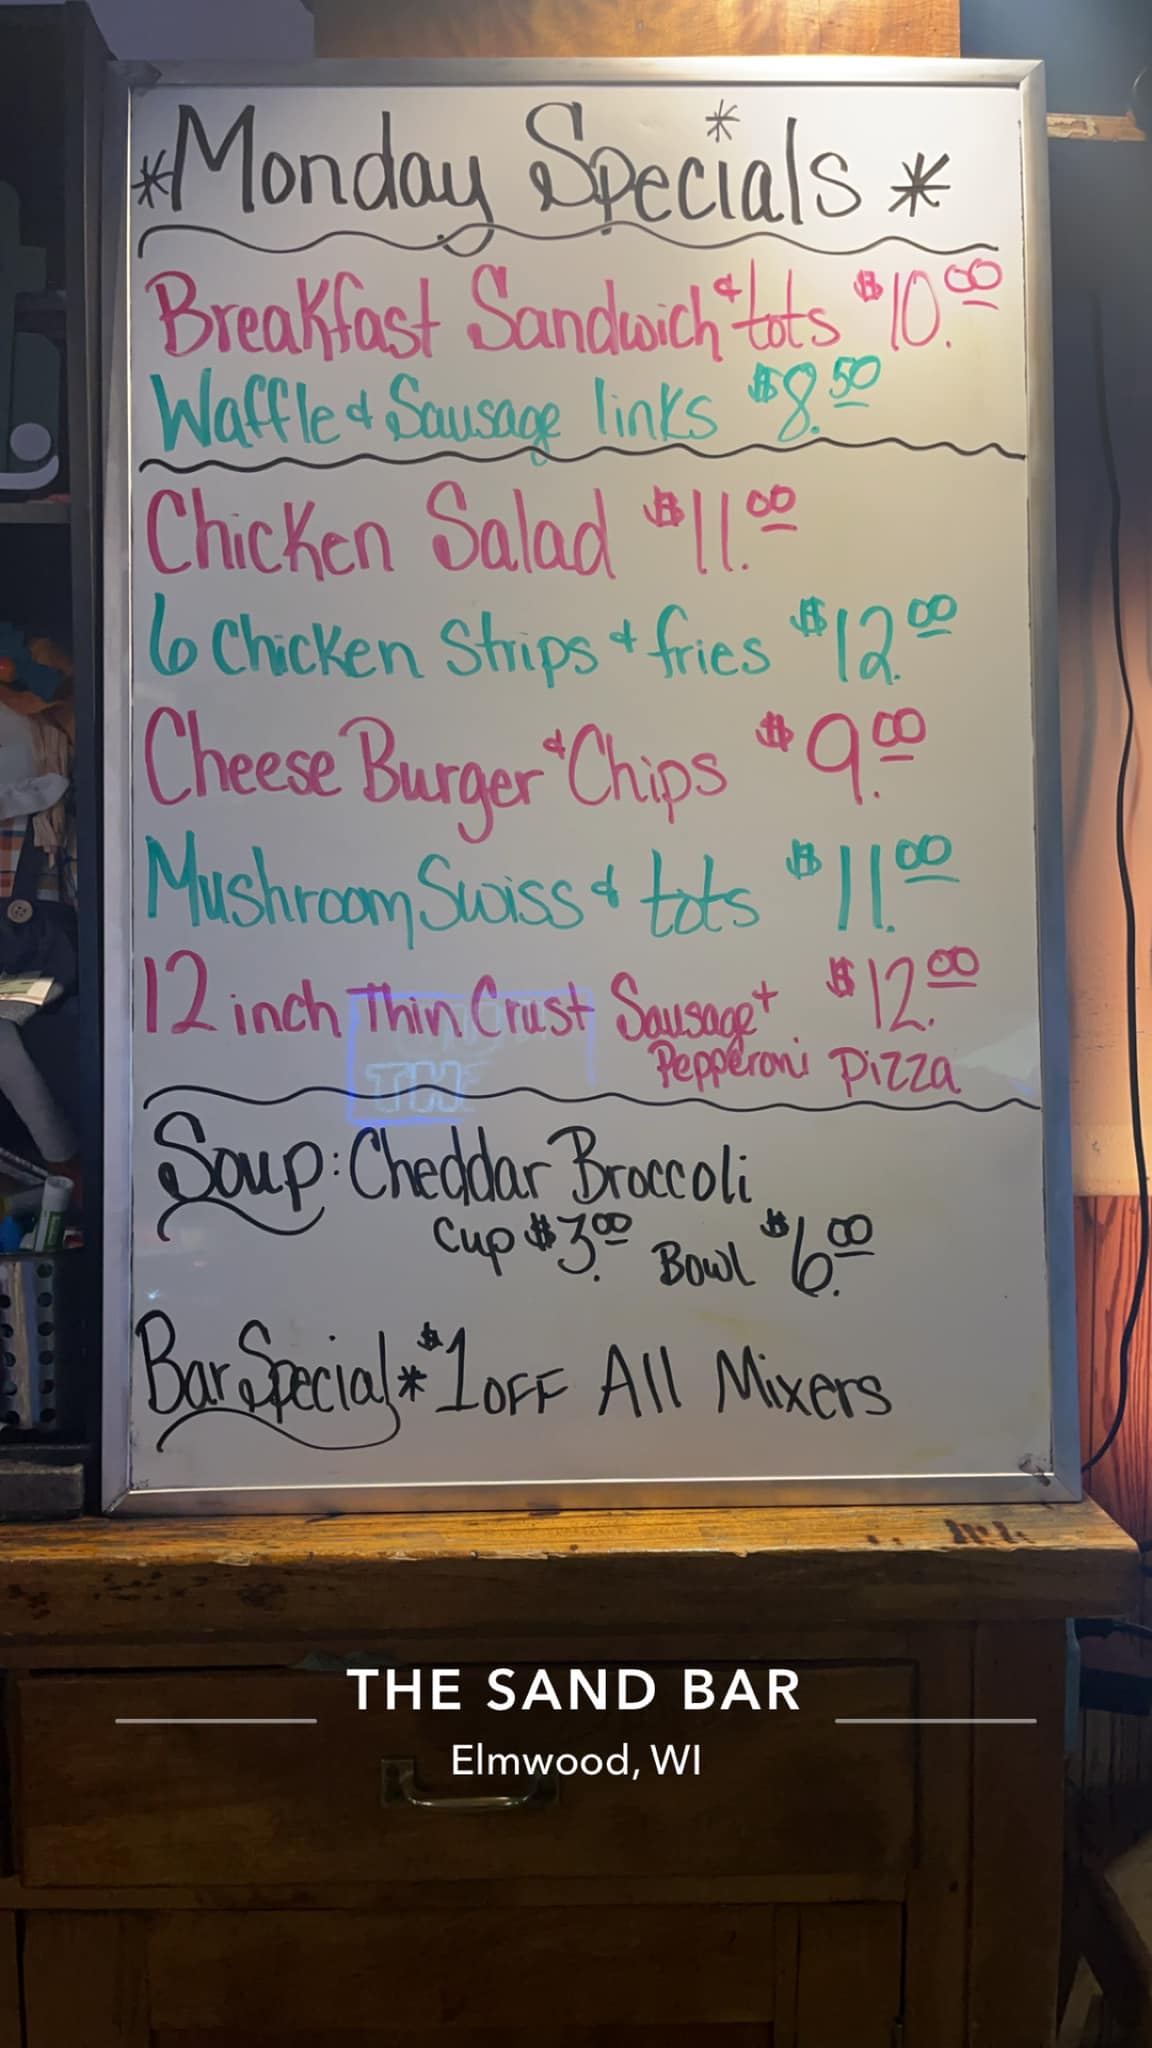 *Monday Specials*
Breakfast Sandwich & tots $10.00
Waffle & Sausage links $8.50
Chicken Salad $11.00
6 Chicken Strips & fries $12.00
Cheese Burger & Chips $9.00
Mushroom Swiss & tots $11.00
12 inch Thin Crust Sausage + $12.00
Pepperoni Pizza
Soup: Cheddar Broccoli
Cup $3.00 Bowl $6.00
Bar Special * $1 OFF All Mixers
THE SAND BAR
Elmwood, WI